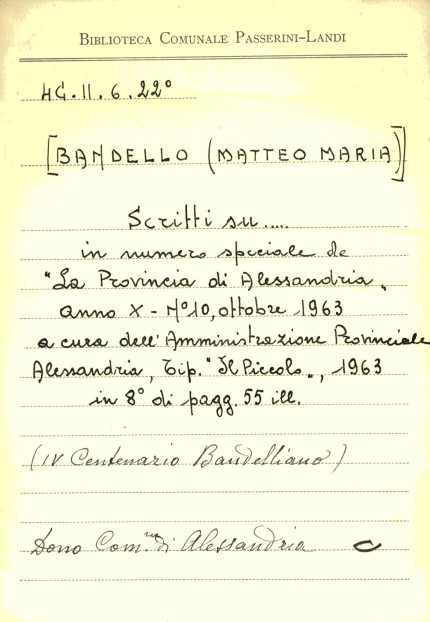 BIBLIOTECA COMUNALE PASSERINI-LANDI
4G.II.6.22°
[BANDELLO (MATTEO MARIA)]
Scritti su.....
in numero speciale de
"La Provincia di Alessandria„
anno X - N°10, ottobre 1963
a cura dell'Amministrazione Provinciale
Alessandria, Tip. "Il Piccolo„, 1963
in 8° di pagg. 55 ill.
(IV Centenario Bandelliano)
Dono Com.ne di Alessandria